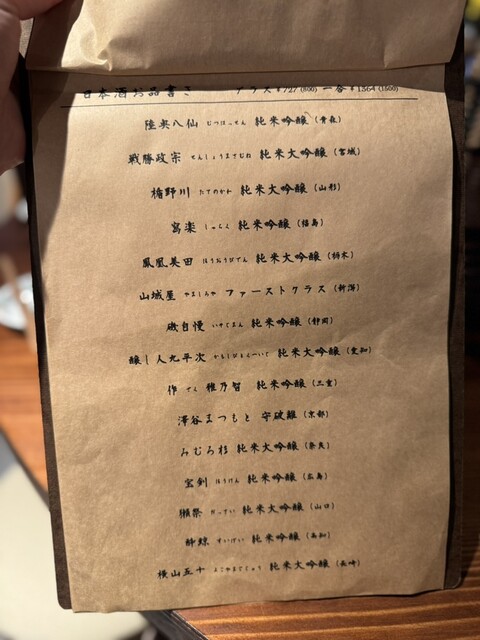 日本酒お品書き グラス ¥727 (800) 一合 ¥1364 (1500)
陸奥八仙 むつはっせん 純米吟醸 (青森)
戦勝政宗 せんしょうまさむね 純米大吟醸 (宮城)
楯野川 たてのかわ 純米大吟醸 (山形)
寫楽 しゃらく 純米吟醸 (福島)
鳳凰美田 ほうおうびでん 純米大吟醸 (栃木)
山城屋 やましろや ファーストクラス (新潟)
磯自慢 いそじまん 純米吟醸 (静岡)
醸し人九平次 かもしびとくへいじ 純米大吟醸 (愛知)
作 ざく 雅乃智 純米吟醸 (三重)
澤谷まつもと 守破離 (京都)
みむろ杉 純米吟醸 (奈良)
宝剣 ほうけん 純米吟醸 (広島)
獺祭 だっさい 純米大吟醸 (山口)
酔鯨 すいげい 純米吟醸 (高知)
横山五十 よこやまごじゅう 純米大吟醸 (長崎)